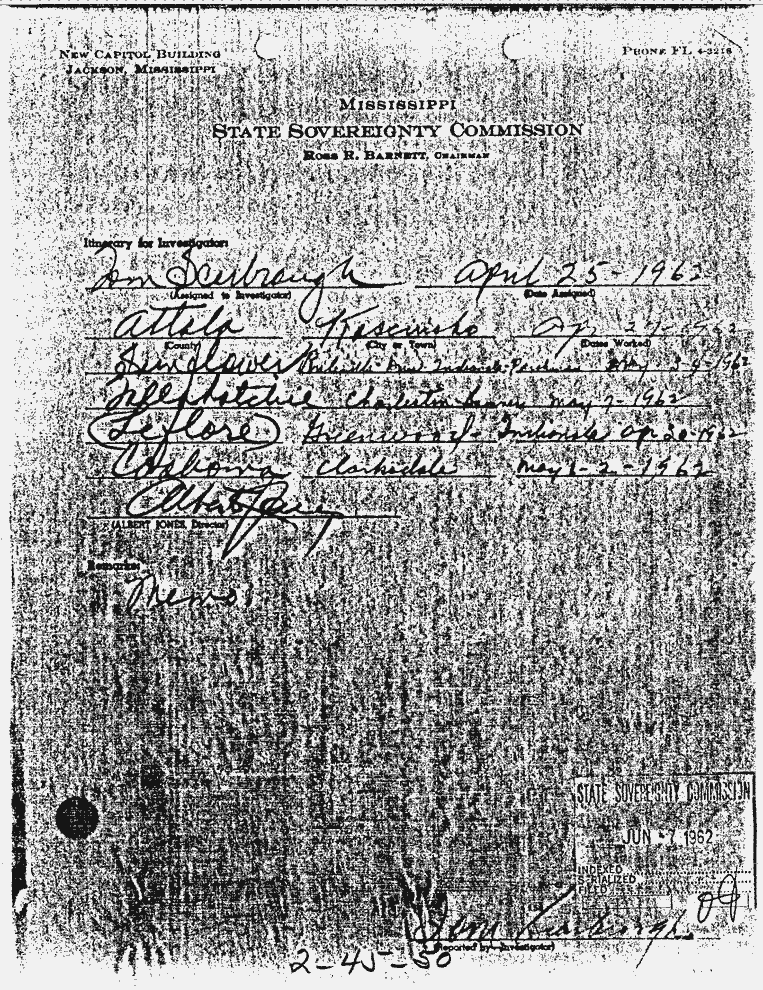 NEW CAPITOL BUILDING
JACKSON, MISSISSIPPI
PHONE FL 4-3218
MISSISSIPPI
STATE SOVEREIGNTY COMMISSION
ROSS R. BARNETT, CHAIRMAN
Itinerary for Investigator:
Tom Scarbrough April 25-1962
(Assigned to Investigator) (Date Assigned)
Attala Kosciusko Ap 1962
(County) (City or Town) (Dates Worked)
Sunflower Drew Indianola May 1962
Charleston May 7-1962
Leflore Greenwood- Indianola Ap 30-1962
Coahoma Clarksdale May 1-2-1962
Albert Jones
(ALBERT JONES, Director)
Remarks:
Memo
STATE SOVEREIGNTY COMMISSION
JUN 7 1962
INDEXED
SERIALIZED
FILED
Tom Scarbrough
(Reported by—Investigator)
2-45-50